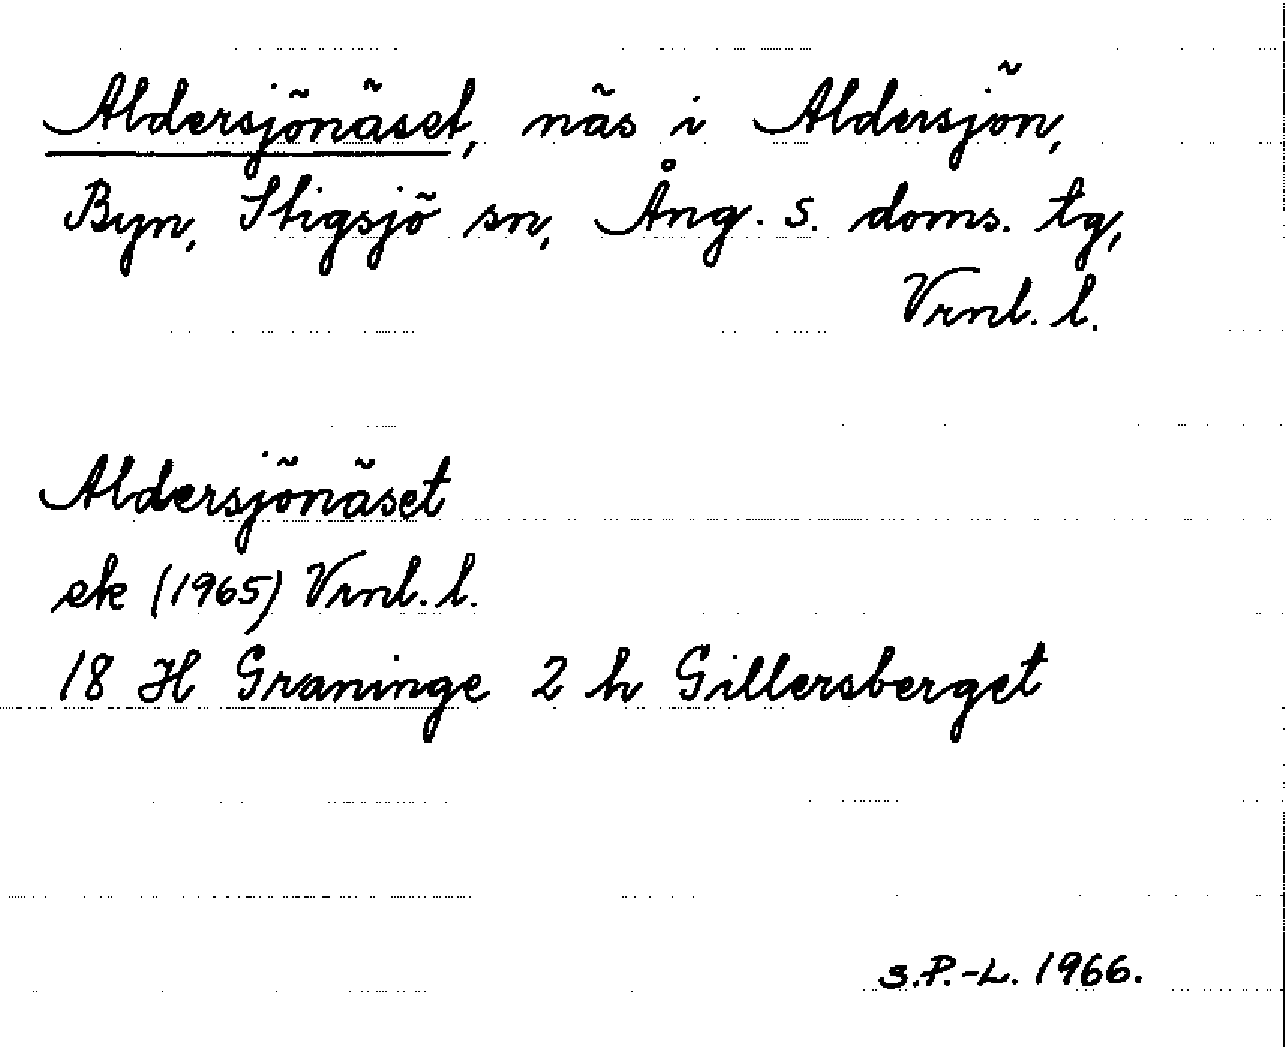 Aldersjönäset, näs i Aldersjön,
Byn, Stigsjö sn, Ång. s. doms. tg,
Vrnl. l.
Aldersjönäset
ek (1965) Vrnl. l.
18 H Graninge 2 h Gillersberget
S.P.-L. 1966.